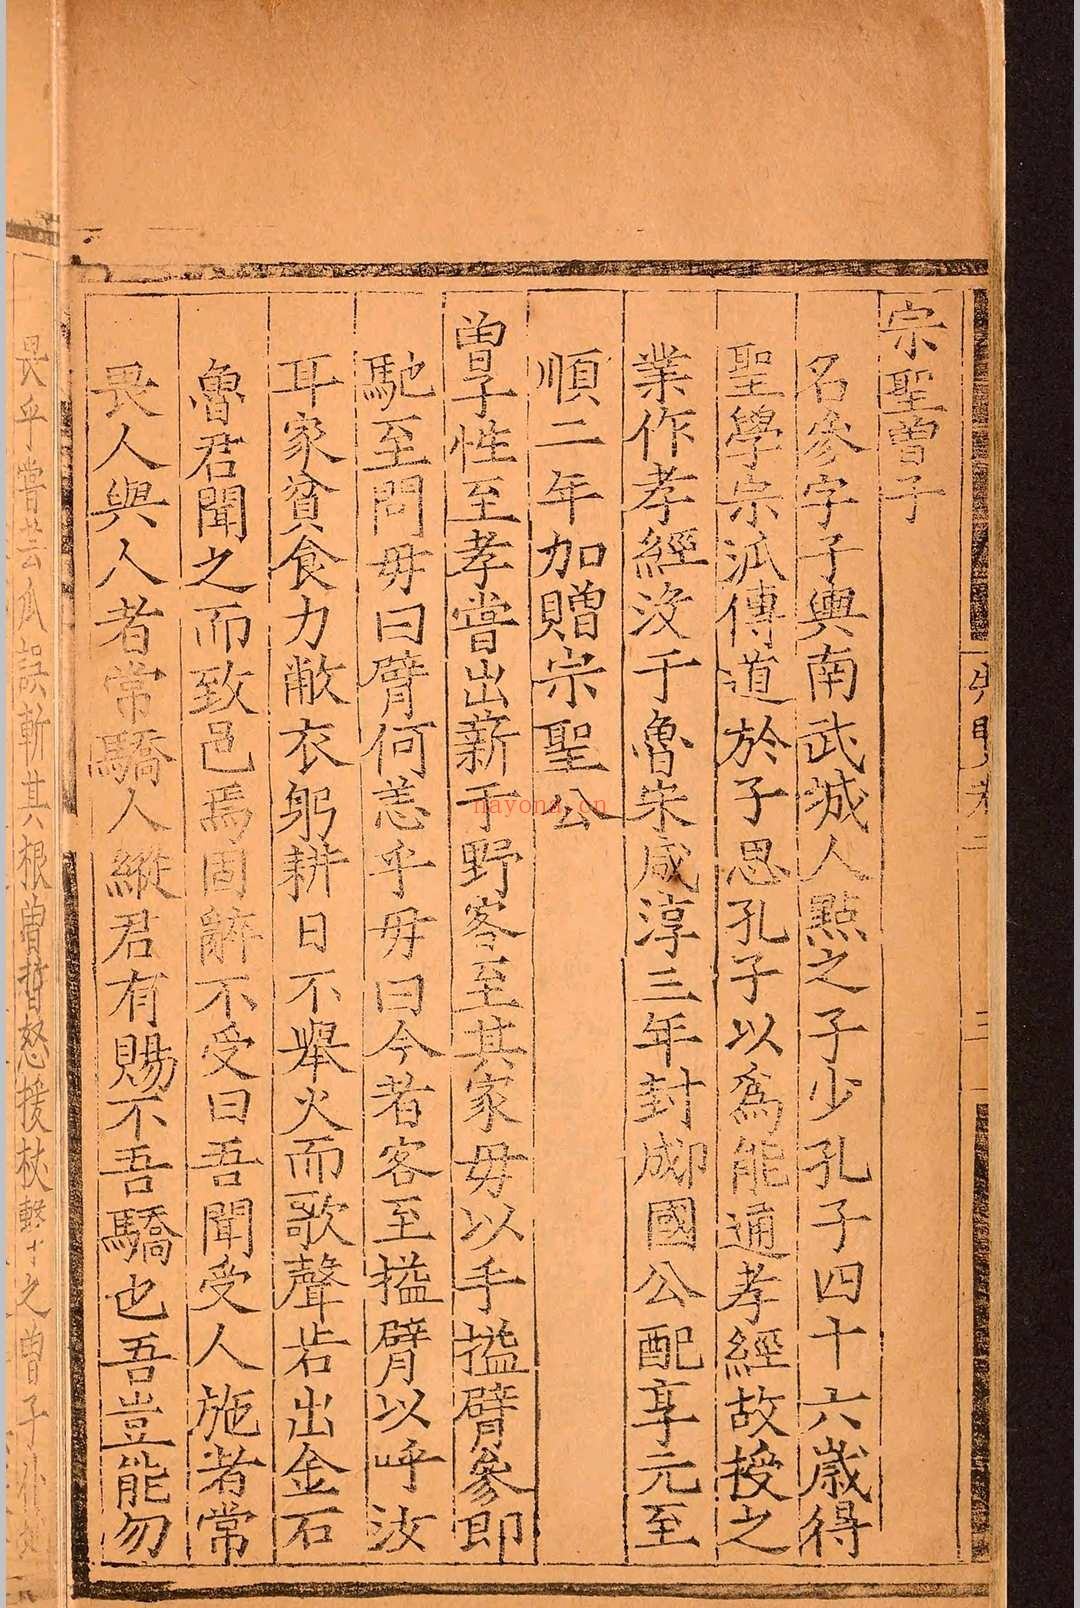 宗聖曾子
名參字子輿南武城人點之子少孔子四十六歲得
聖學宗泒傳道於子思孔子以爲能通孝經故授之
業作孝經沒于魯宋咸淳三年封郕國公配享元至
順二年加贈宗聖公
曾子性至孝嘗出薪于野客至其家毋以手搤臂參即
馳至問毋曰臂何恙乎毋曰今者客至搤臂以呼汝
耳家貧食力敝衣躬耕日不舉火而歌聲若出金石
魯君聞之而致邑焉固辭不受曰吾聞受人施者常
畏人與人者常驕人縱君有賜不吾驕也吾豈能勿
畏乎嘗芸瓜誤斬其根曾晳怒援杖擊之曾子仆
nayona.cn